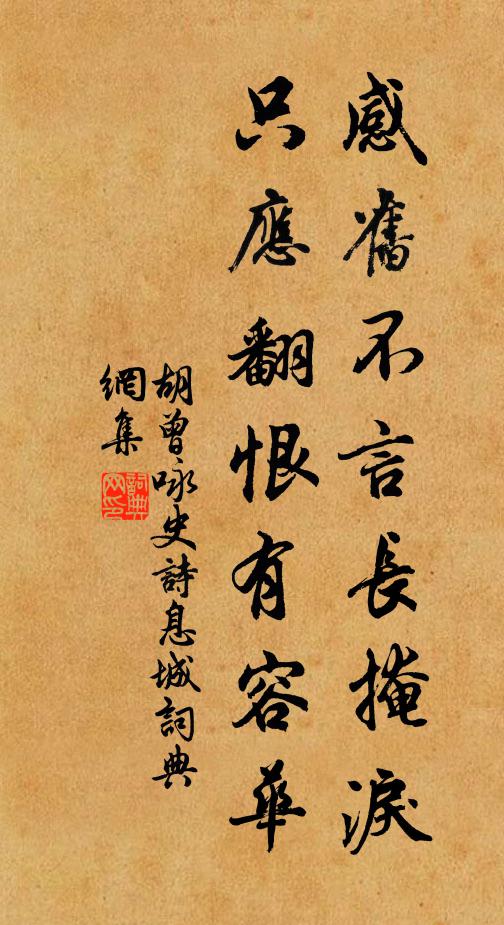 感舊不言長掩淚
只應翻恨有容華
胡曾咏史詩息城詞典
網集
詞典
网印